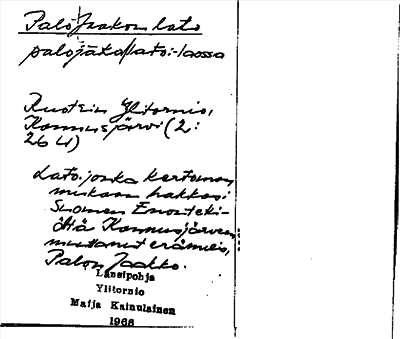 Palo Jaakon lato
palojā·kol/lato:-laossa
Ruotsin Ylitornio,
Konnusjärvi (2:
26 U)
Lato, jonka kertoman
mukaan hakkasi
Suomen Enonteki-
öltä Konnusjärveen
muuttanut erämies,
Palon Jaakko.
Länsipohja
Ylitornio
Maija Kainulainen
1966